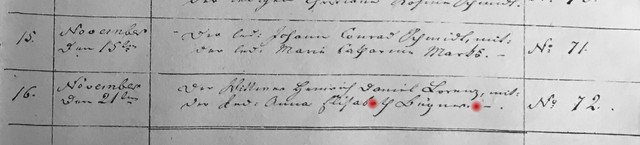 15. November den 15ten Der led: Johann Conrad Schmidt, mit: No 71.
der led: Maria Catharina Marks. –
16. November den 21ten Der Wittwer Heinrich Daniel Lorenz, mit: No 72.
der led: Anna Elisabeth